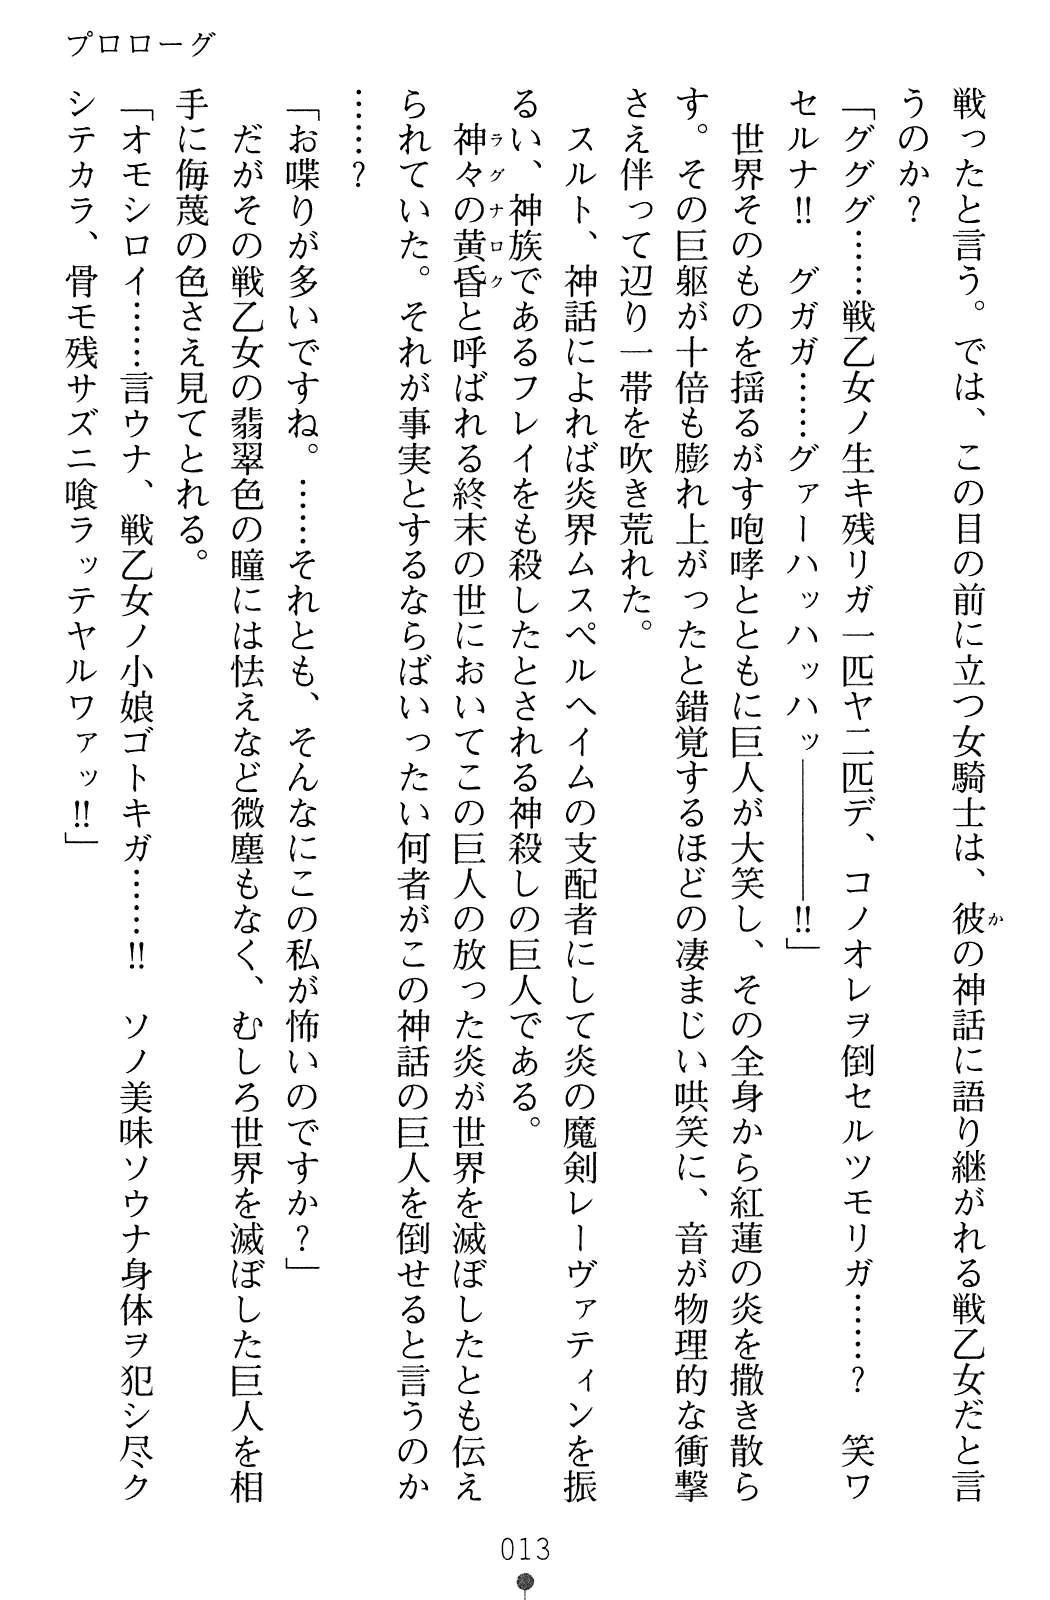 プロローグ
戦ったと言う。では、この目の前に立つ女騎士は、彼の神話に語り継がれる戦乙女だと言
うのか？
「グググ……戦乙女ノ生キ残リガ一匹ヤ二匹デ、コノオレヲ倒セルツモリガ……？　笑ワ
セルナ!!　グガガ……グァーハッハッハッ――――!!」
　世界そのものを揺るがす咆哮とともに巨人が大笑し、その全身から紅蓮の炎を撒き散ら
す。その巨躯が十倍も膨れ上がったと錯覚するほどの凄まじい哄笑に、音が物理的な衝撃
さえ伴って辺り一帯を吹き荒れた。
　スルト、神話によれば炎界ムスペルヘイムの支配者にして炎の魔剣レーヴァティンを振
るい、神族であるフレイをも殺したとされる神殺しの巨人である。
　神々の黄昏と呼ばれる終末の世においてこの巨人の放った炎が世界を滅ぼしたとも伝え
られていた。それが事実とするならばいったい何者がこの神話の巨人を倒せると言うのか
……？
「お喋りが多いですね。……それとも、そんなにこの私が怖いのですか？」
　だがその戦乙女の翡翠色の瞳には怯えなど微塵もなく、むしろ世界を滅ぼした巨人を相
手に侮蔑の色さえ見てとれる。
「オモシロイ……言ウナ、戦乙女ノ小娘ゴトキガ……!!　ソノ美味ソウナ身体ヲ犯シ尽ク
シテカラ、骨モ残サズニ喰ラッテヤルワァッ!!」
か
ラグナロク
013